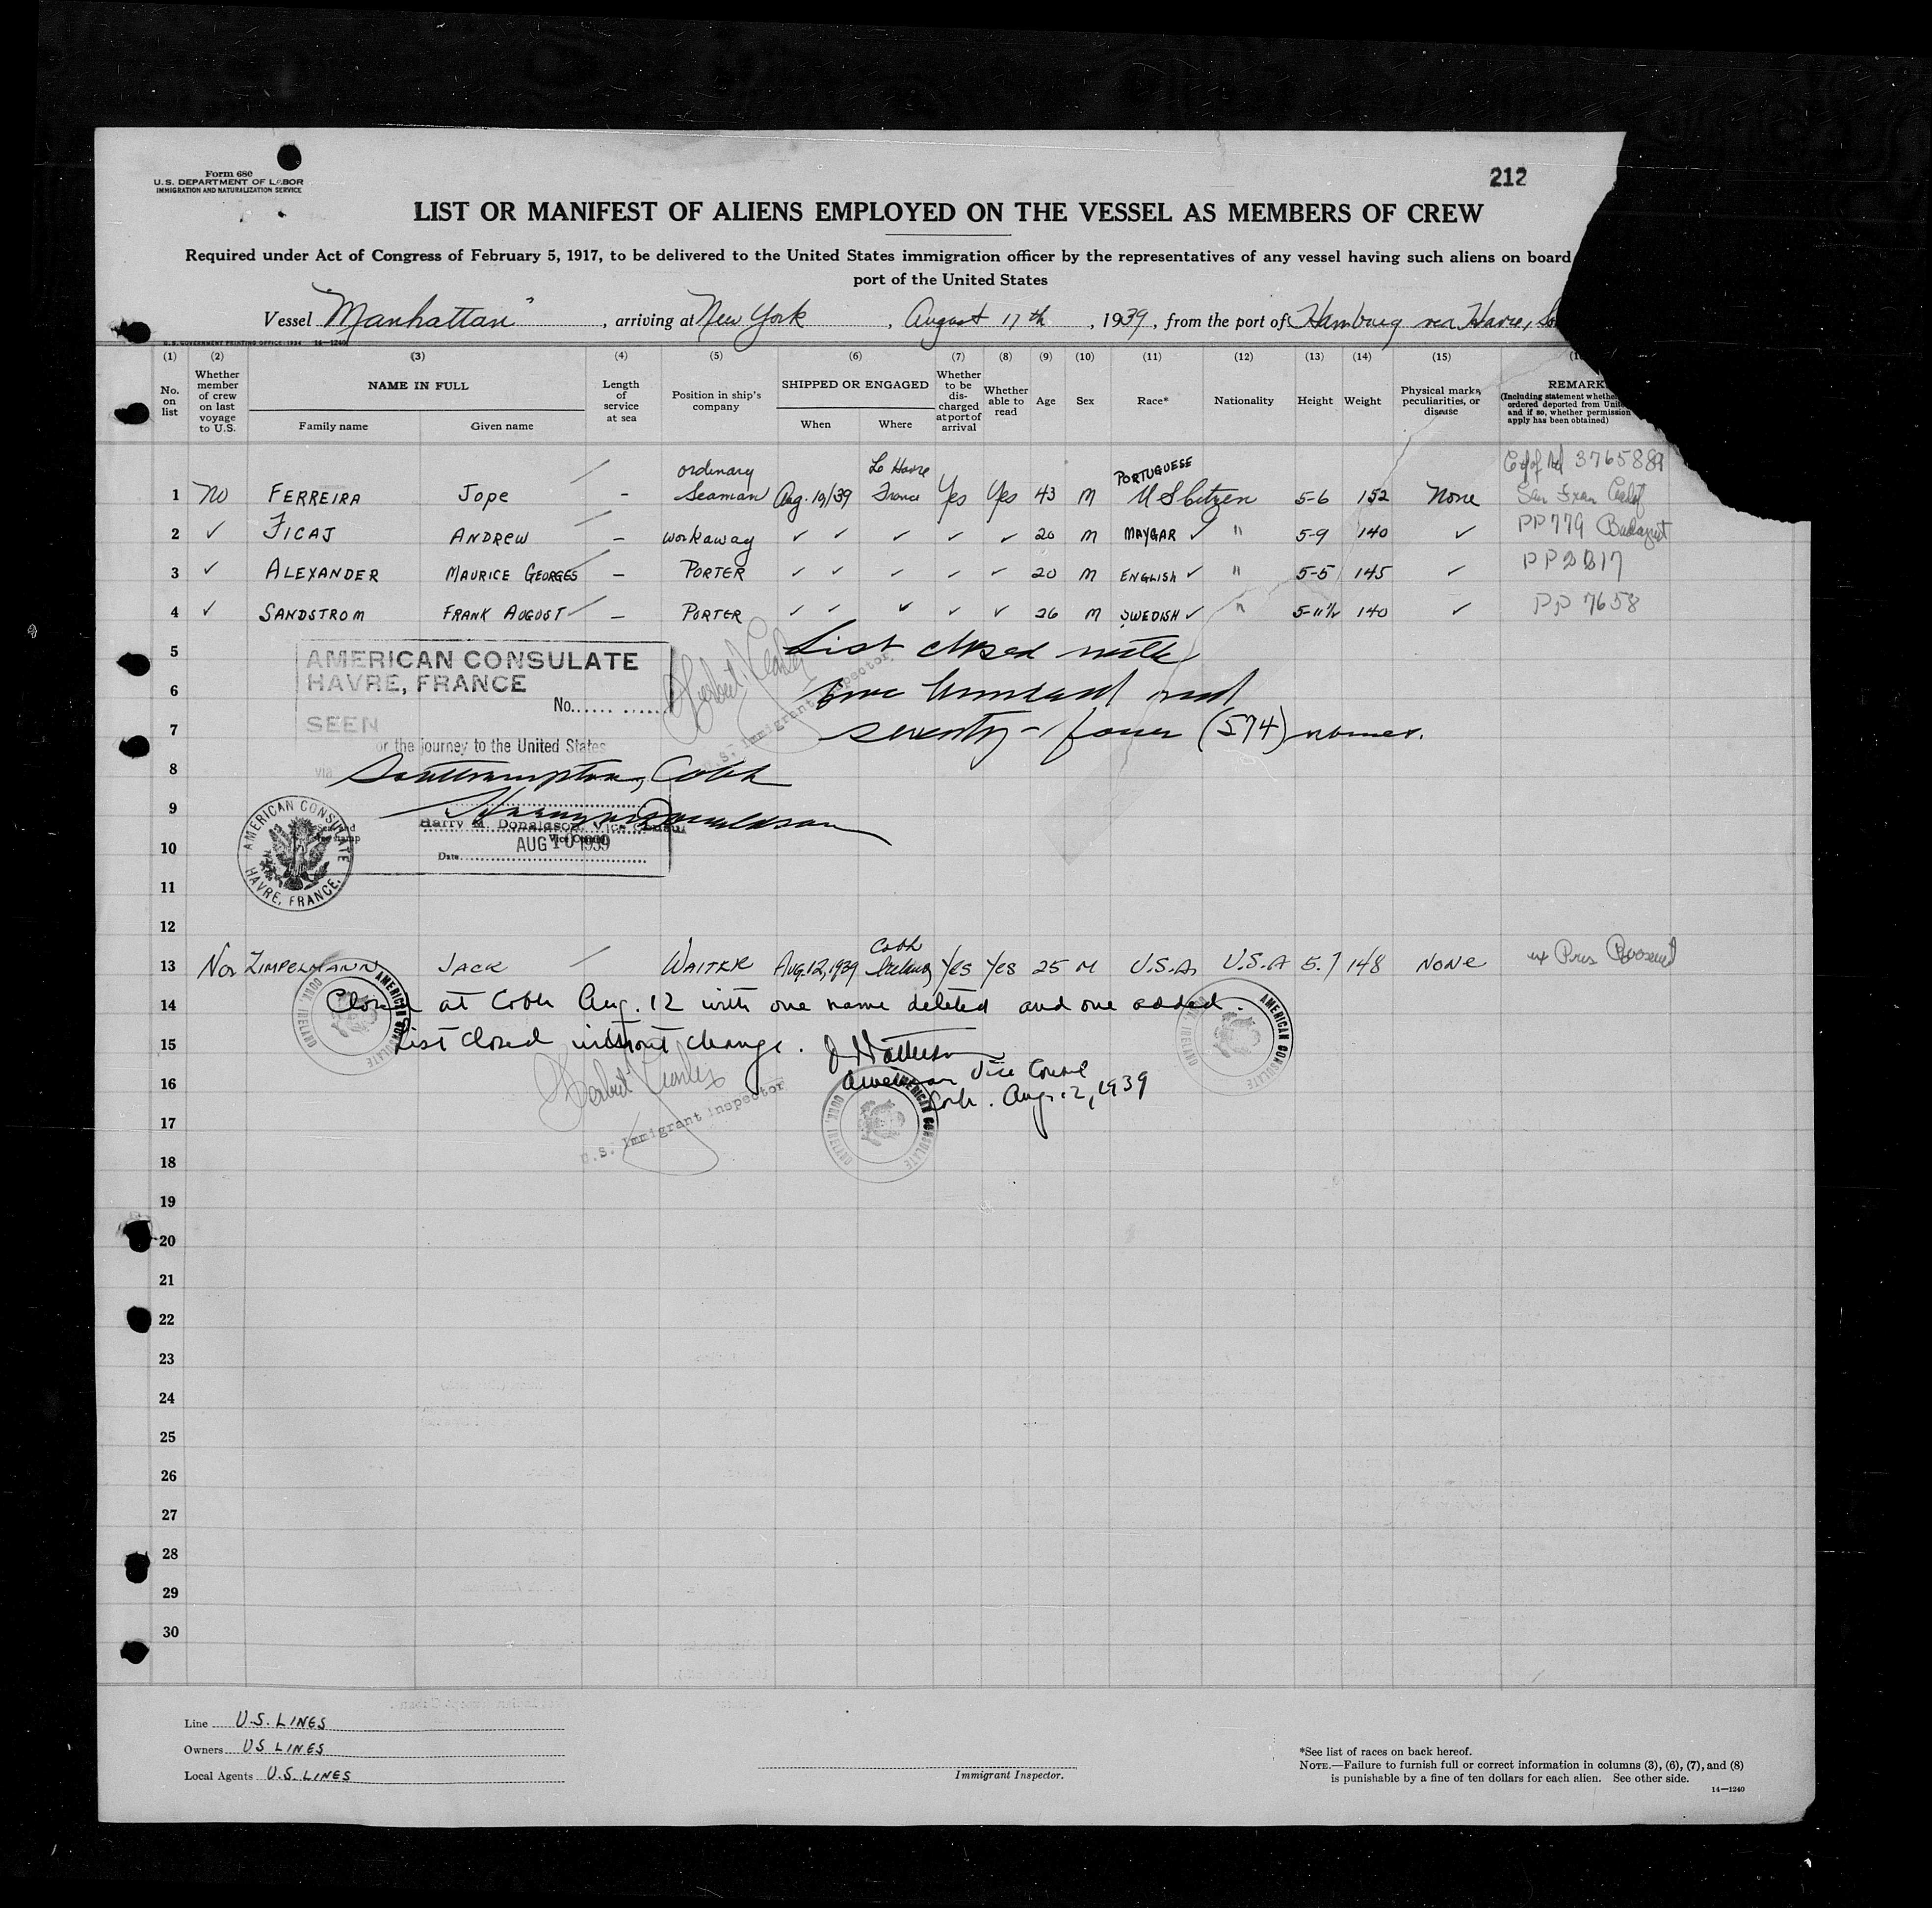 Form 680
U.S. DEPARTMENT OF LABOR
IMMIGRATION AND NATURALIZATION SERVICE
212
LIST OR MANIFEST OF ALIENS EMPLOYED ON THE VESSEL AS MEMBERS OF CREW
Required under Act of Congress of February 5, 1917, to be delivered to the United States immigration officer by the representatives of any vessel having such aliens on board
port of the United States
Vessel "Manhattan" , arriving at New York , August 17th , 1939 , from the port of Hamburg via Havre,
U. S. GOVERNMENT PRINTING OFFICE: 1934 14-1240
(1) (2) (3) (4) (5) (6) (7) (8) (9) (10) (11) (12) (13) (14) (15)
No. on list
Whether member of crew on last voyage to U.S.
NAME IN FULL
Family name Given name
Length of service at sea
Position in ship's company
SHIPPED OR ENGAGED
When Where
Whether to be discharged at port of arrival
Whether able to read
Age Sex Race* Nationality Height Weight
Physical marks, peculiarities, or disease
REMARK
(Including statement whether
ordered deported from Unit
and if so, whether permission
apply has been obtained)
1 No FERREIRA Jope / - ordinary Seaman Aug. 10/39 Le Havre France Yes Yes 43 M PORTUGUESE U S Citizen 5-6 152 None 3765889 San Fran
2 ✓ FICAJ ANDREW / - workaway ✓ ✓ ✓ ✓ ✓ 20 M MAYGAR ✓ " 5-9 140 ✓ PP 779 Budapest
3 ✓ ALEXANDER MAURICE GEORGES / - PORTER ✓ ✓ ✓ ✓ ✓ 20 M ENGLISH ✓ " 5-5 145 ✓ PP
4 ✓ SANDSTROM FRANK AUGUST / - PORTER ✓ ✓ ✓ ✓ ✓ 26 M SWEDISH ✓ " 5-11½ 140 ✓ PP 7658
5 List closed with
6 five hundred and
7 seventy-four (574) names.
AMERICAN CONSULATE
HAVRE, FRANCE
No.
SEEN
or the journey to the United States
8 via Southampton, Cobh
U.S. Immigrant Inspector
9
Harry M. Donaldson, Vice Consul
10
AUG 10 1939
Date
AMERICAN CONSULATE HAVRE, FRANCE.
11
12
13 No ZIMPELMANN JACK / WAITER AUG. 12, 1939 Cobh Ireland YES YES 25 M U.S.A. U.S.A 5.7 148 NONE Pres Roosevelt
14 Closed at Cobh Aug. 12 with one name deleted and one added.
15 List closed without change.
16 American Vice Consul
Cobh. Aug. 12, 1939
U.S. Immigrant Inspector
AMERICAN CONSULATE CORK, IRELAND
AMERICAN CONSULATE CORK, IRELAND
AMERICAN CONSULATE CORK, IRELAND
17
18
19
20
21
22
23
24
25
26
27
28
29
30
Line U.S. LINES
Owners US LINES
Local Agents U.S. LINES
Immigrant Inspector.
*See list of races on back hereof.
NOTE.—Failure to furnish full or correct information in columns (3), (6), (7), and (8)
is punishable by a fine of ten dollars for each alien. See other side.
14—1240